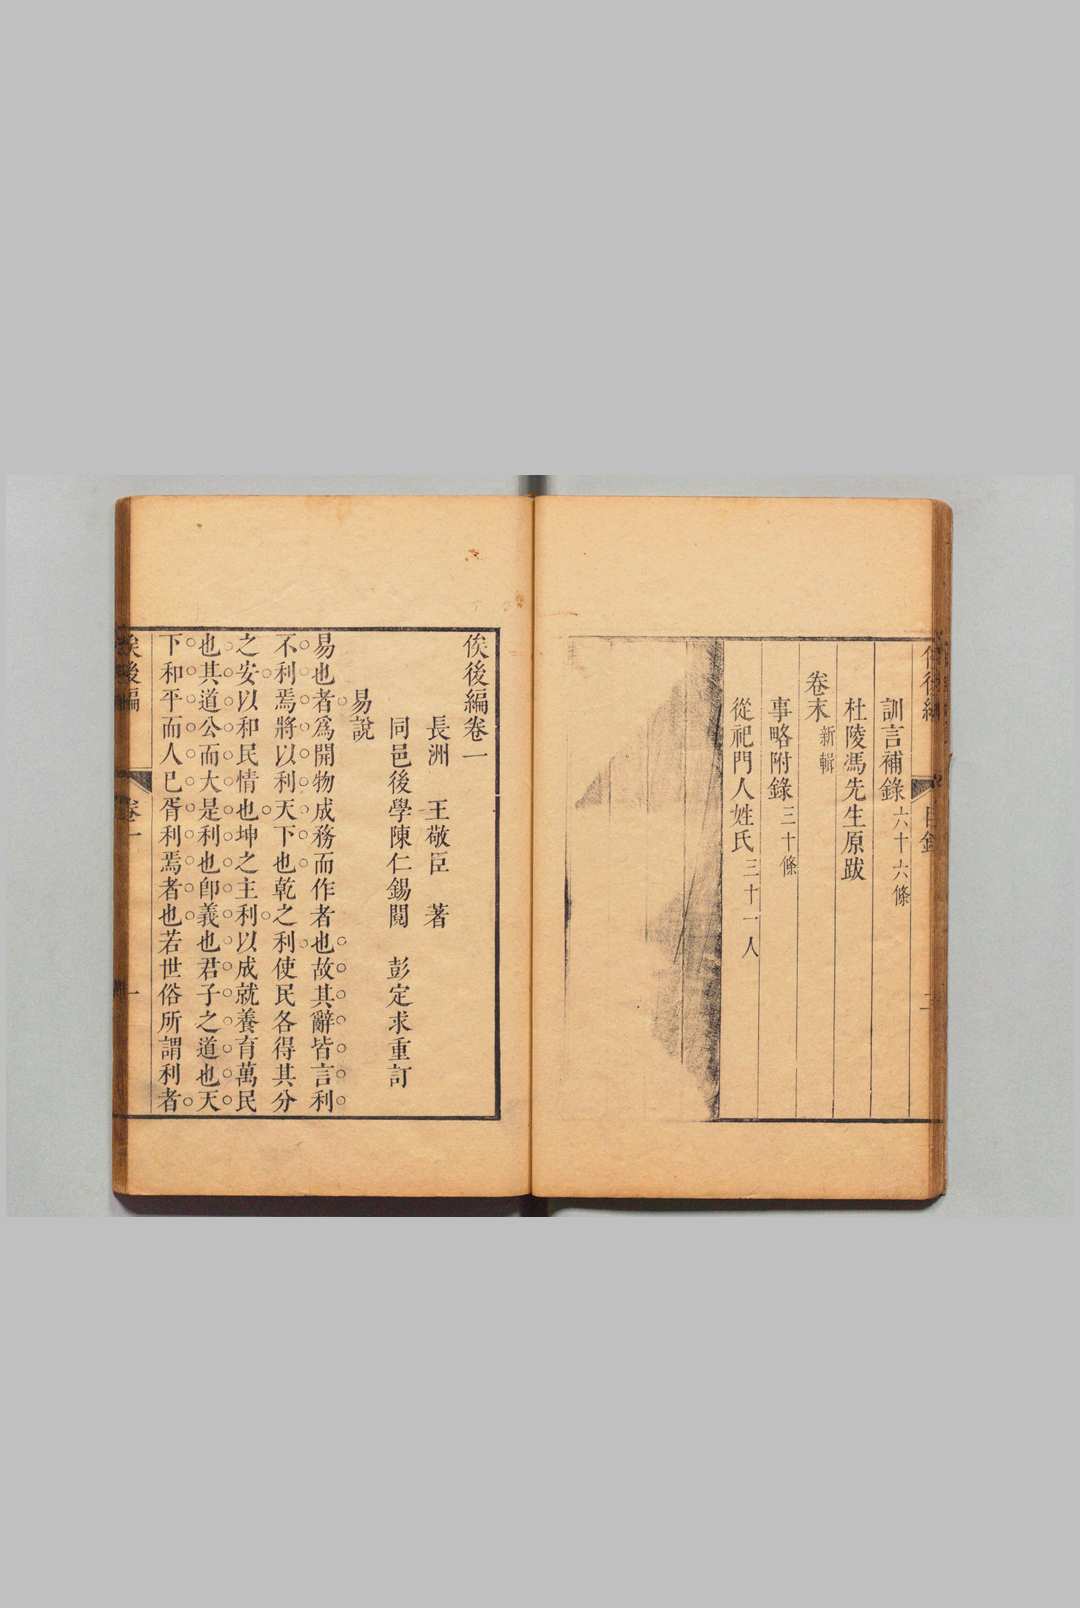 訓言補錄六十六條
杜陵馮先生原跋
卷末新輯
事略附錄三十條
從祀門人姓氏三十一人
俟後編卷一
長洲 王敬臣 著
同邑後學陳仁錫閱 彭定求重訂
易說
易也者爲開物成務而作者也故其辭皆言利
不利焉將以利天下也乾之利使民各得其分
之安以和民情也坤之主利以成就養育萬民
也其道公而大是利也卽義也君子之道也天
下和平而人已胥利焉者也若世俗所謂利者
俟後編
卷一
一